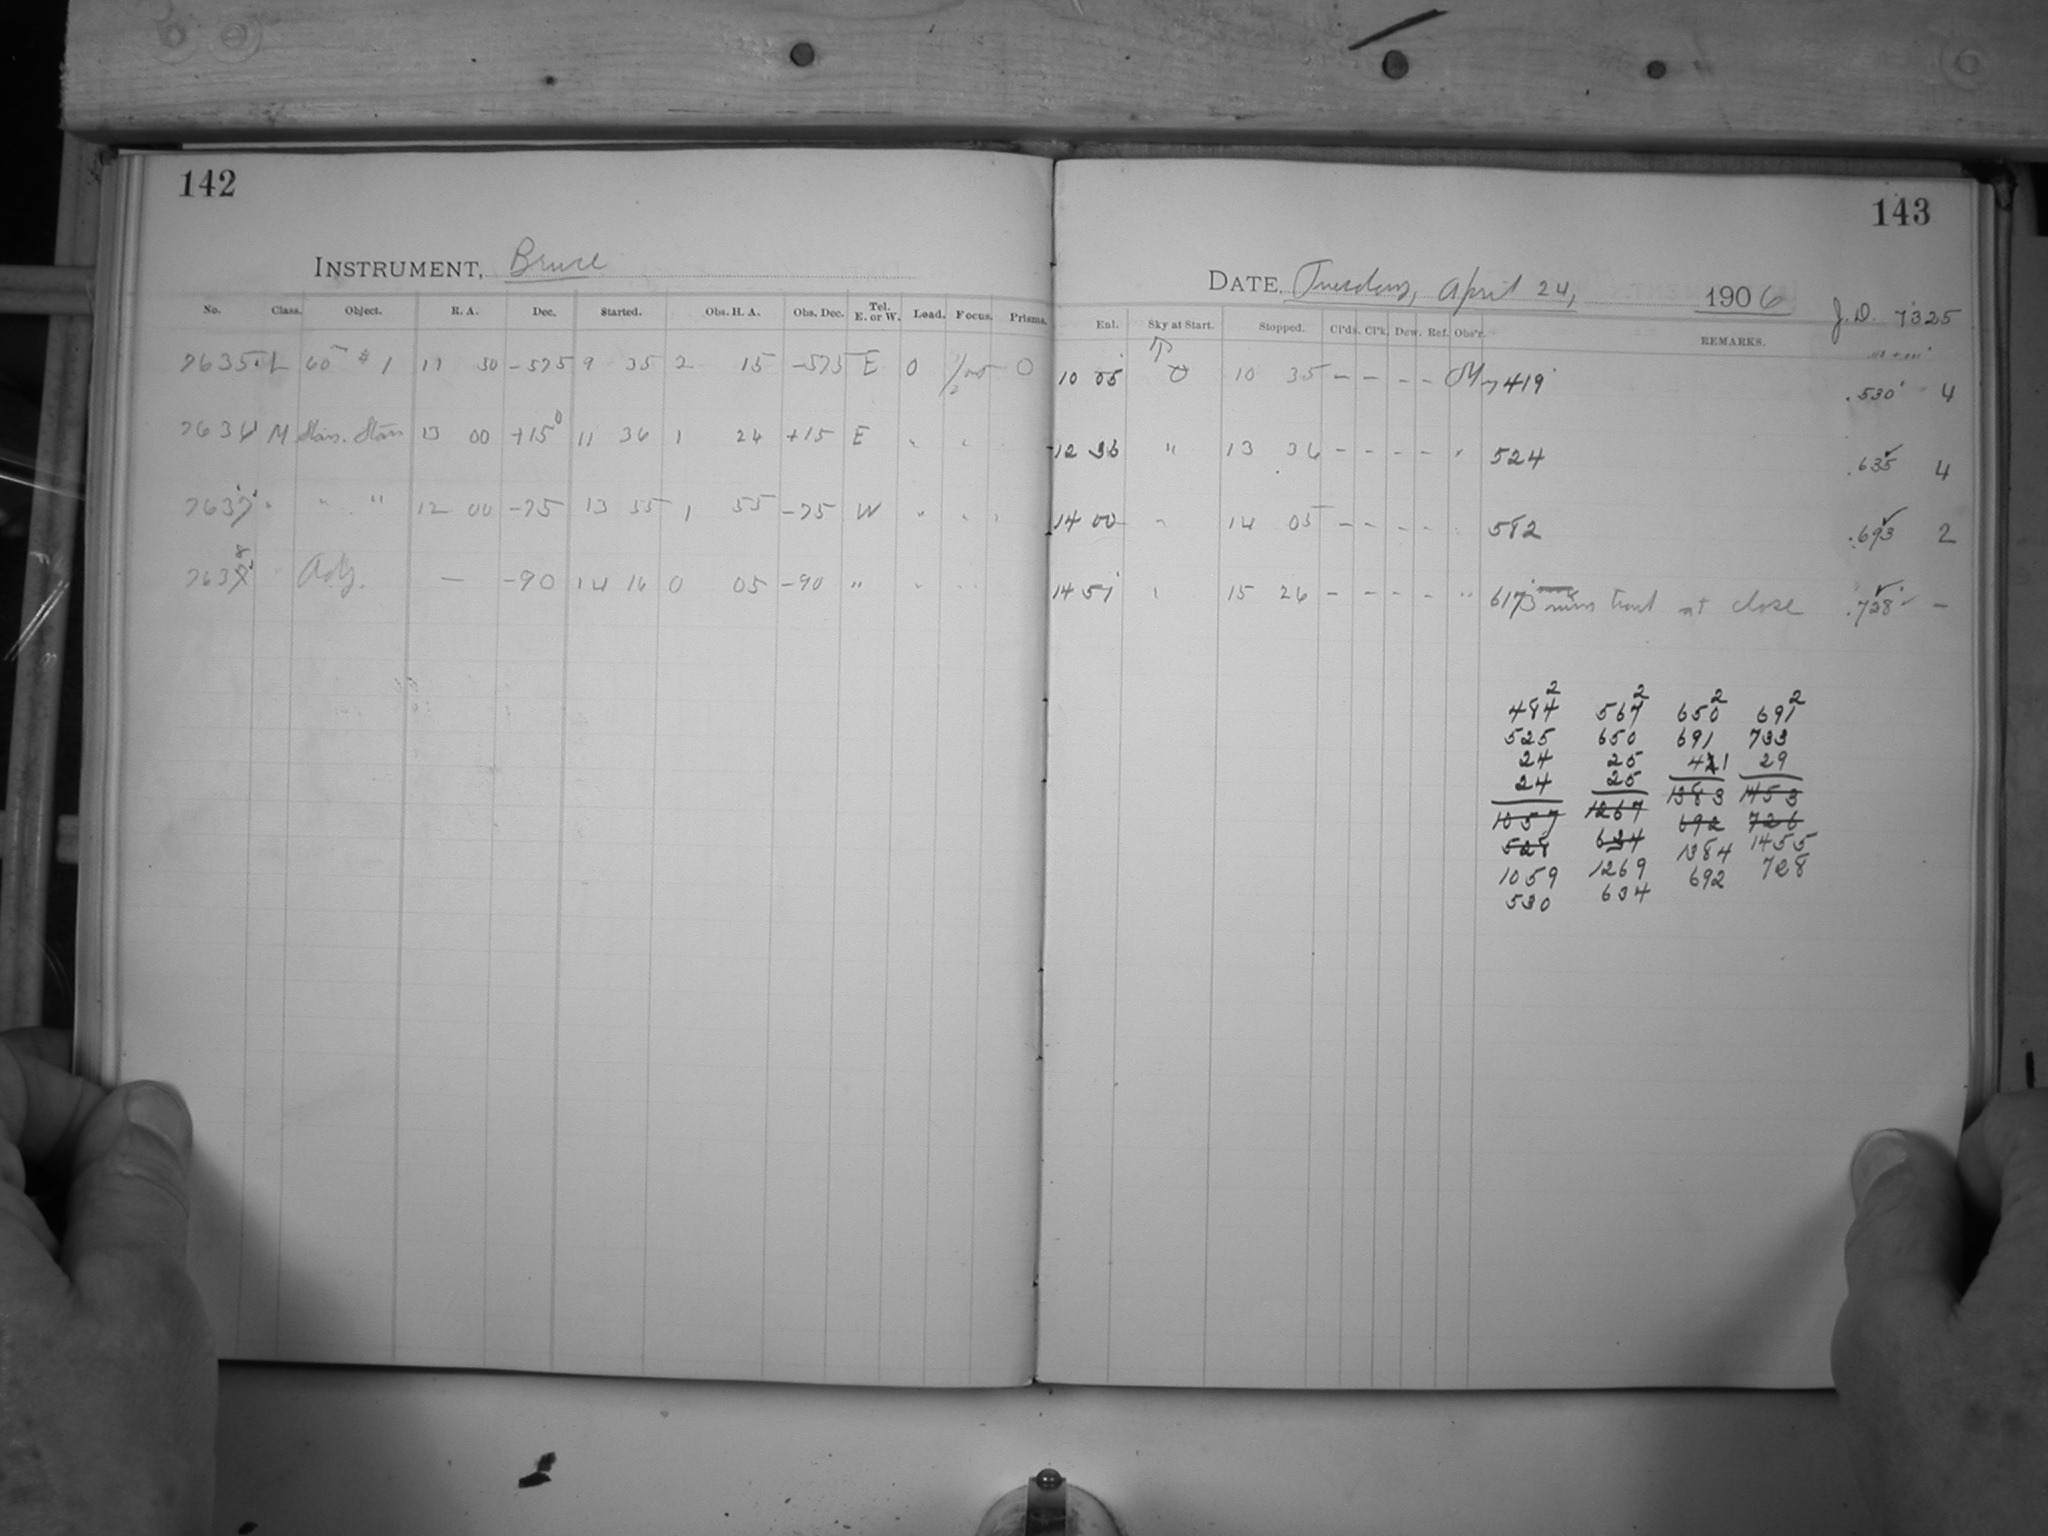 142
INSTRUMENT, Bruce
No. Class. Object. R. A. Dec. Started. Obs. H. A. Obs. Dec. Tel. E. or W. Load. Focus. Prisms.
7635 L 60 # 1 11 50 -575 9 35 2 15 -575 E 0 0
M Stars 13 00 +15 11 36 1 24 +15 E
" 12 00 -75 13 55 1 55 -75 W
7638 Adj. — -90 14 16 0 05 -90 "
143
DATE, Tuesday, April 24, 1906 J. D. 7325
Ent. Sky at Start. Stopped. Cl'ds. Cl'k. Dew. Ref. Obs'r. REMARKS.
10 05 10 35 - - - - 419 .530 4
12 36 " 13 36 - - - - 524 .635 4
14 00 14 05 - - - - 582 .693 2
14 51 15 26 - - - - " 617 trail at close .728 -
2 2 2 2
484 567 650 691
525 650 691 733
24 25 29
24 25
1057 1267 1383 1453
528 634 692 726
1059 1269 1384 1455
530 634 692 728